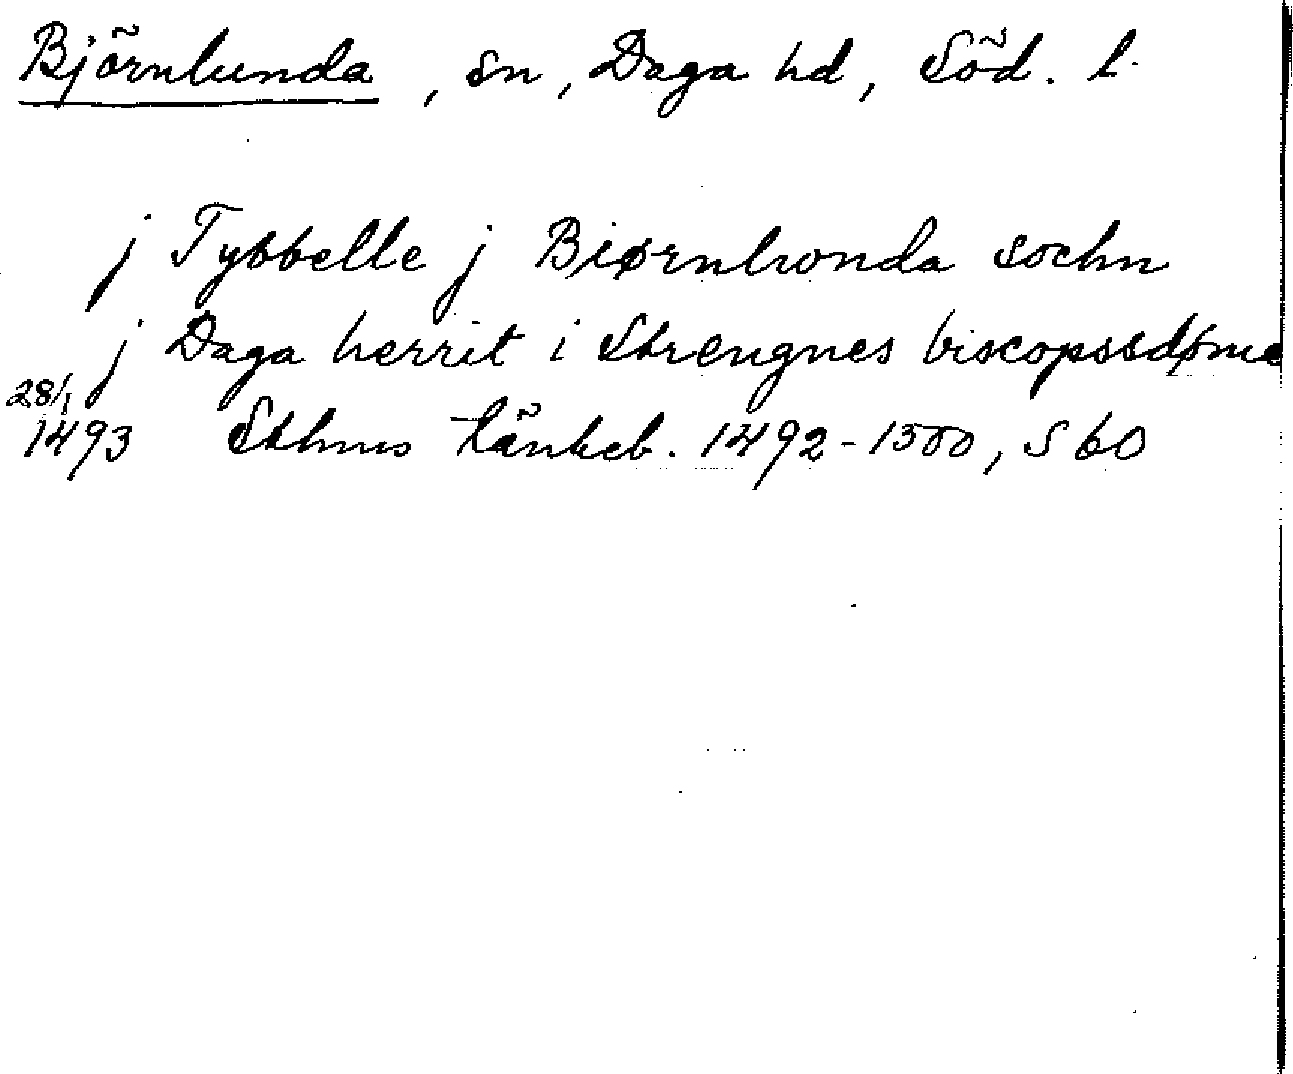 Björnlunda, sn, Daga hd, Söd. l.
j Tybbelle j Biørnlwnda sochn
j Daga herrit i Strengnes biscopssdøme
28/1
1493 Sthms tänkeb. 1492-1500, s 60